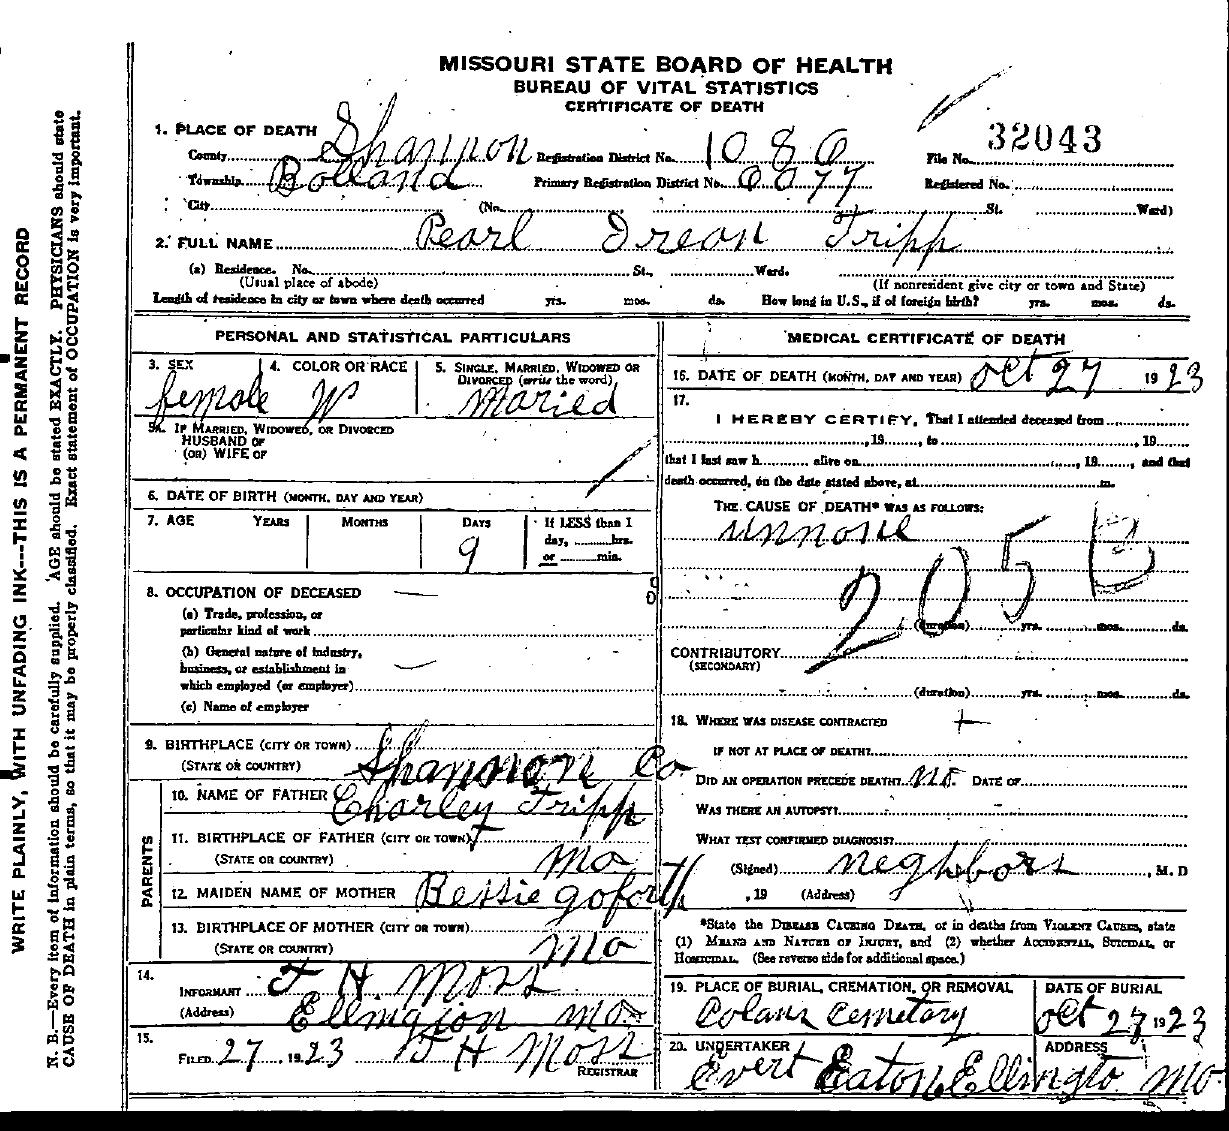 MISSOURI STATE BOARD OF HEALTH
BUREAU OF VITAL STATISTICS
CERTIFICATE OF DEATH
1. PLACE OF DEATH
County Shannon Registration District No. 1080 File No. 32043
Township Bolland Primary Registration District No. 6077 Registered No.
City (No. St. Ward)
2. FULL NAME Pearl Drean Tripp
(a) Residence. No. St., Ward.
(Usual place of abode) (If nonresident give city or town and State)
Length of residence in city or town where death occurred yrs. mos. ds. How long in U.S., if of foreign birth? yrs. mos. ds.
PERSONAL AND STATISTICAL PARTICULARS
3. SEX 4. COLOR OR RACE 5. SINGLE, MARRIED, WIDOWED OR DIVORCED (write the word)
female W Maried
5A. IF MARRIED, WIDOWED, OR DIVORCED
HUSBAND OF
(OR) WIFE OF
6. DATE OF BIRTH (MONTH, DAY AND YEAR)
7. AGE YEARS MONTHS DAYS If LESS than 1
day, hrs.
9 or min.
8. OCCUPATION OF DECEASED
(a) Trade, profession, or
particular kind of work
(b) General nature of industry,
business, or establishment in
which employed (or employer)
(c) Name of employer
9. BIRTHPLACE (CITY OR TOWN)
(STATE OR COUNTRY) Shannon Co
PARENTS
10. NAME OF FATHER Charley Tripp
11. BIRTHPLACE OF FATHER (CITY OR TOWN)
(STATE OR COUNTRY) Mo
12. MAIDEN NAME OF MOTHER Bessie goforth
13. BIRTHPLACE OF MOTHER (CITY OR TOWN)
(STATE OR COUNTRY) Mo
14.
INFORMANT J H. Moss
(Address) Ellington mo
15.
FILED 27 1923 J H Moss
REGISTRAR
MEDICAL CERTIFICATE OF DEATH
16. DATE OF DEATH (MONTH, DAY AND YEAR) Oct 27 1923
17.
I HEREBY CERTIFY, That I attended deceased from
, 19 , to , 19
that I last saw h alive on , 19 , and that
death occurred, on the date stated above, at m.
THE CAUSE OF DEATH* WAS AS FOLLOWS:
unnone
205 B
(duration) yrs. mos. ds.
CONTRIBUTORY
(SECONDARY)
(duration) yrs. mos. ds.
18. WHERE WAS DISEASE CONTRACTED
IF NOT AT PLACE OF DEATH?
DID AN OPERATION PRECEDE DEATH? no. DATE OF
WAS THERE AN AUTOPSY?
WHAT TEST CONFIRMED DIAGNOSIS?
(Signed) neghbors , M. D
, 19 (Address)
*State the DISEASE CAUSING DEATH, or in deaths from VIOLENT CAUSES, state
(1) MEANS AND NATURE OF INJURY, and (2) whether ACCIDENTAL, SUICIDAL, or
HOMICIDAL. (See reverse side for additional space.)
19. PLACE OF BURIAL, CREMATION, OR REMOVAL DATE OF BURIAL
Cemetary Oct 27 1923
20. UNDERTAKER ADDRESS
Evert Eaton Ellingto Mo
WRITE PLAINLY, WITH UNFADING INK---THIS IS A PERMANENT RECORD
N. B.—Every item of information should be carefully supplied. AGE should be stated EXACTLY. PHYSICIANS should state
CAUSE OF DEATH in plain terms, so that it may be properly classified. Exact statement of OCCUPATION is very important.